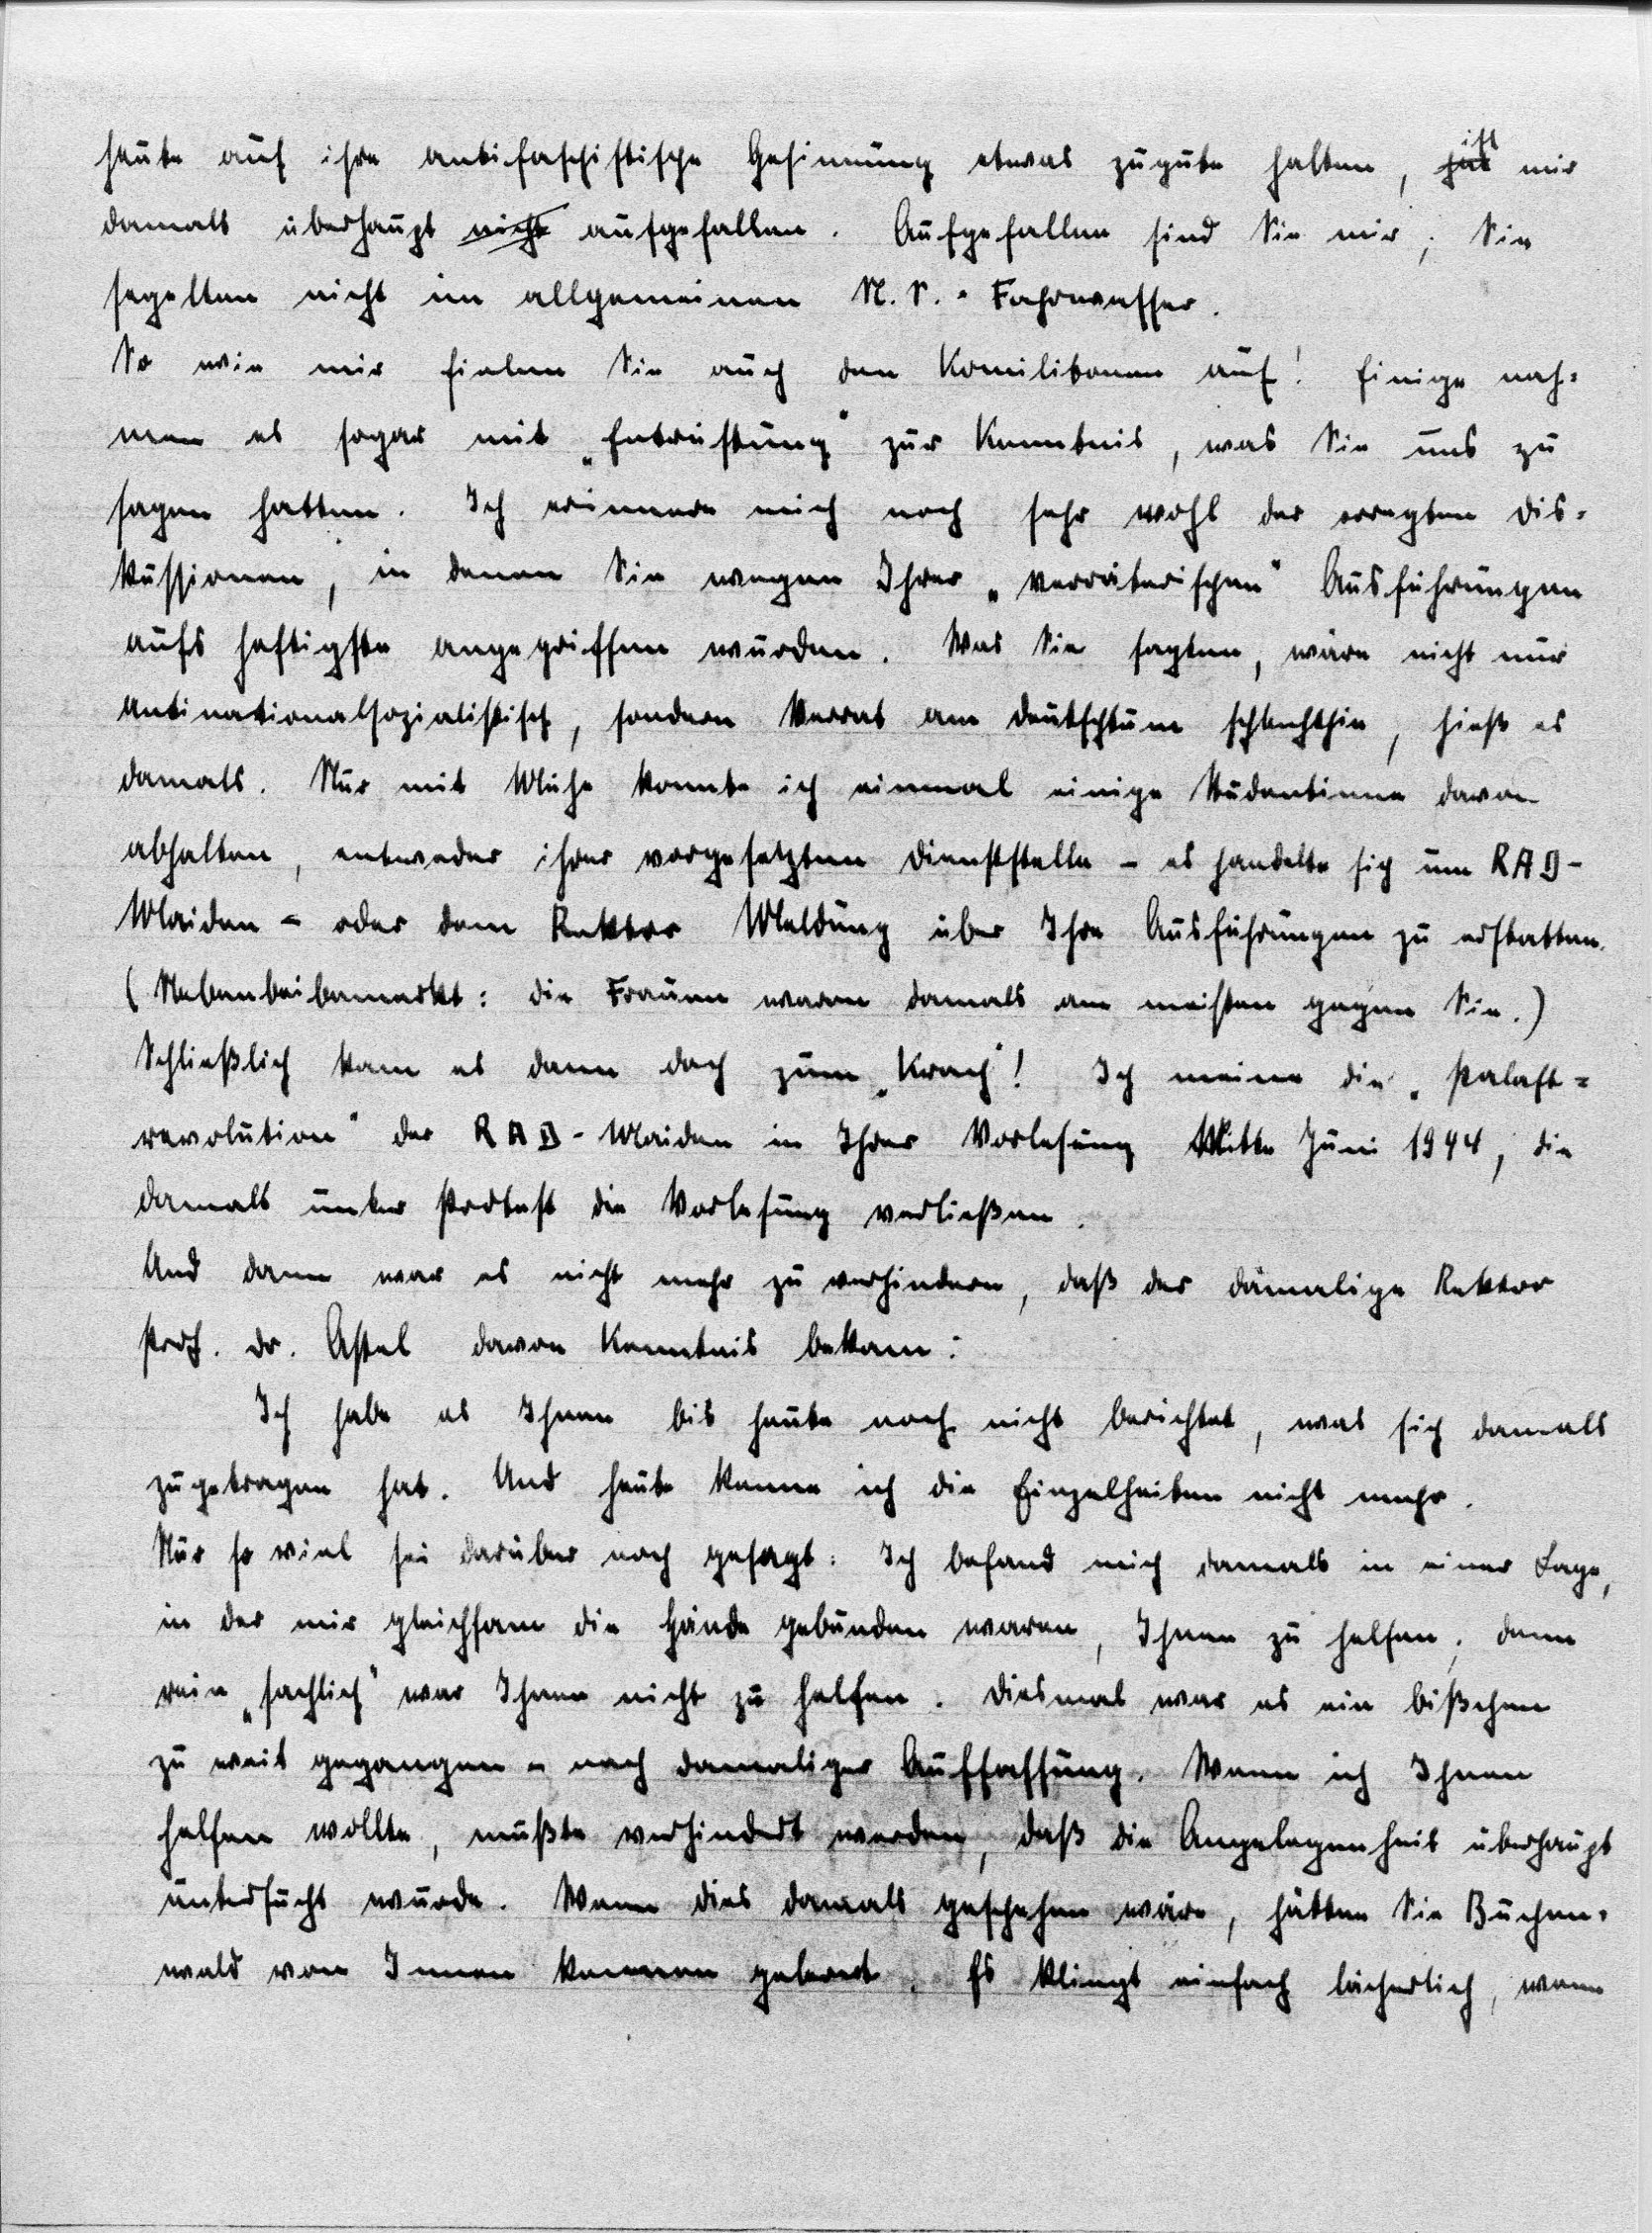 heute auf ihre antifaschistische Gesinnung etwas zugute halten, hat ist mir
damals überhaupt nicht aufgefallen. Aufgefallen sind Sie mir; Sie
segelten nicht im allgemeinen N.S.-Fahrwasser.
So wie mir fielen Sie auch den Komilitonen auf! Einige nah-
men es sogar mit „Entrüstung" zur Kenntnis, was Sie uns zu
sagen hatten. Ich erinnere mich noch sehr wohl der erregten Dis-
kussionen, in denen Sie wegen Ihrer „verräterischen" Ausführungen
aufs heftigste angegriffen wurden. Was Sie sagten, wäre nicht nur
antinationalsozialistisch, sondern Verrat am Deutschtum schlechthin, hieß es
damals. Nur mit Mühe konnte ich einmal einige Studentinnen davon
abhalten, entweder ihrer vorgesetzten Dienststelle - es handelte sich um RAD-
Maiden - oder dem Rektor Meldung über Ihre Ausführungen zu erstatten.
(Nebenbeibemerkt: die Frauen waren damals am meisten gegen Sie.)
Schließlich kam es dann doch zum „Krach"! Ich meine die „Palast-
revolution" der RAD-Maiden in Ihrer Vorlesung Mitte Juni 1944, die
damals unter Protest die Vorlesung verließen.
Und dann war es nicht mehr zu verhindern, daß der damalige Rektor
Prof. Dr. Astel davon Kenntnis bekam:
Ich habe es Ihnen bis heute noch nicht berichtet, was sich damals
zugetragen hat. Und heute kenne ich die Einzelheiten nicht mehr.
Nur so viel sei darüber noch gesagt: Ich befand mich damals in einer Lage,
in der mir gleichsam die Hände gebunden waren, Ihnen zu helfen; denn
rein „sachlich" war Ihnen nicht zu helfen. Diesmal war es ein bißchen
zu weit gegangen - nach damaliger Auffassung. Wenn ich Ihnen
helfen wollte, mußte verhindert werden, daß die Angelegenheit überhaupt
untersucht wurde. Wenn dies damals geschehen wäre, hätten Sie Buchen-
wald von Innen kennen gelernt. Es klingt einfach lächerlich, wenn